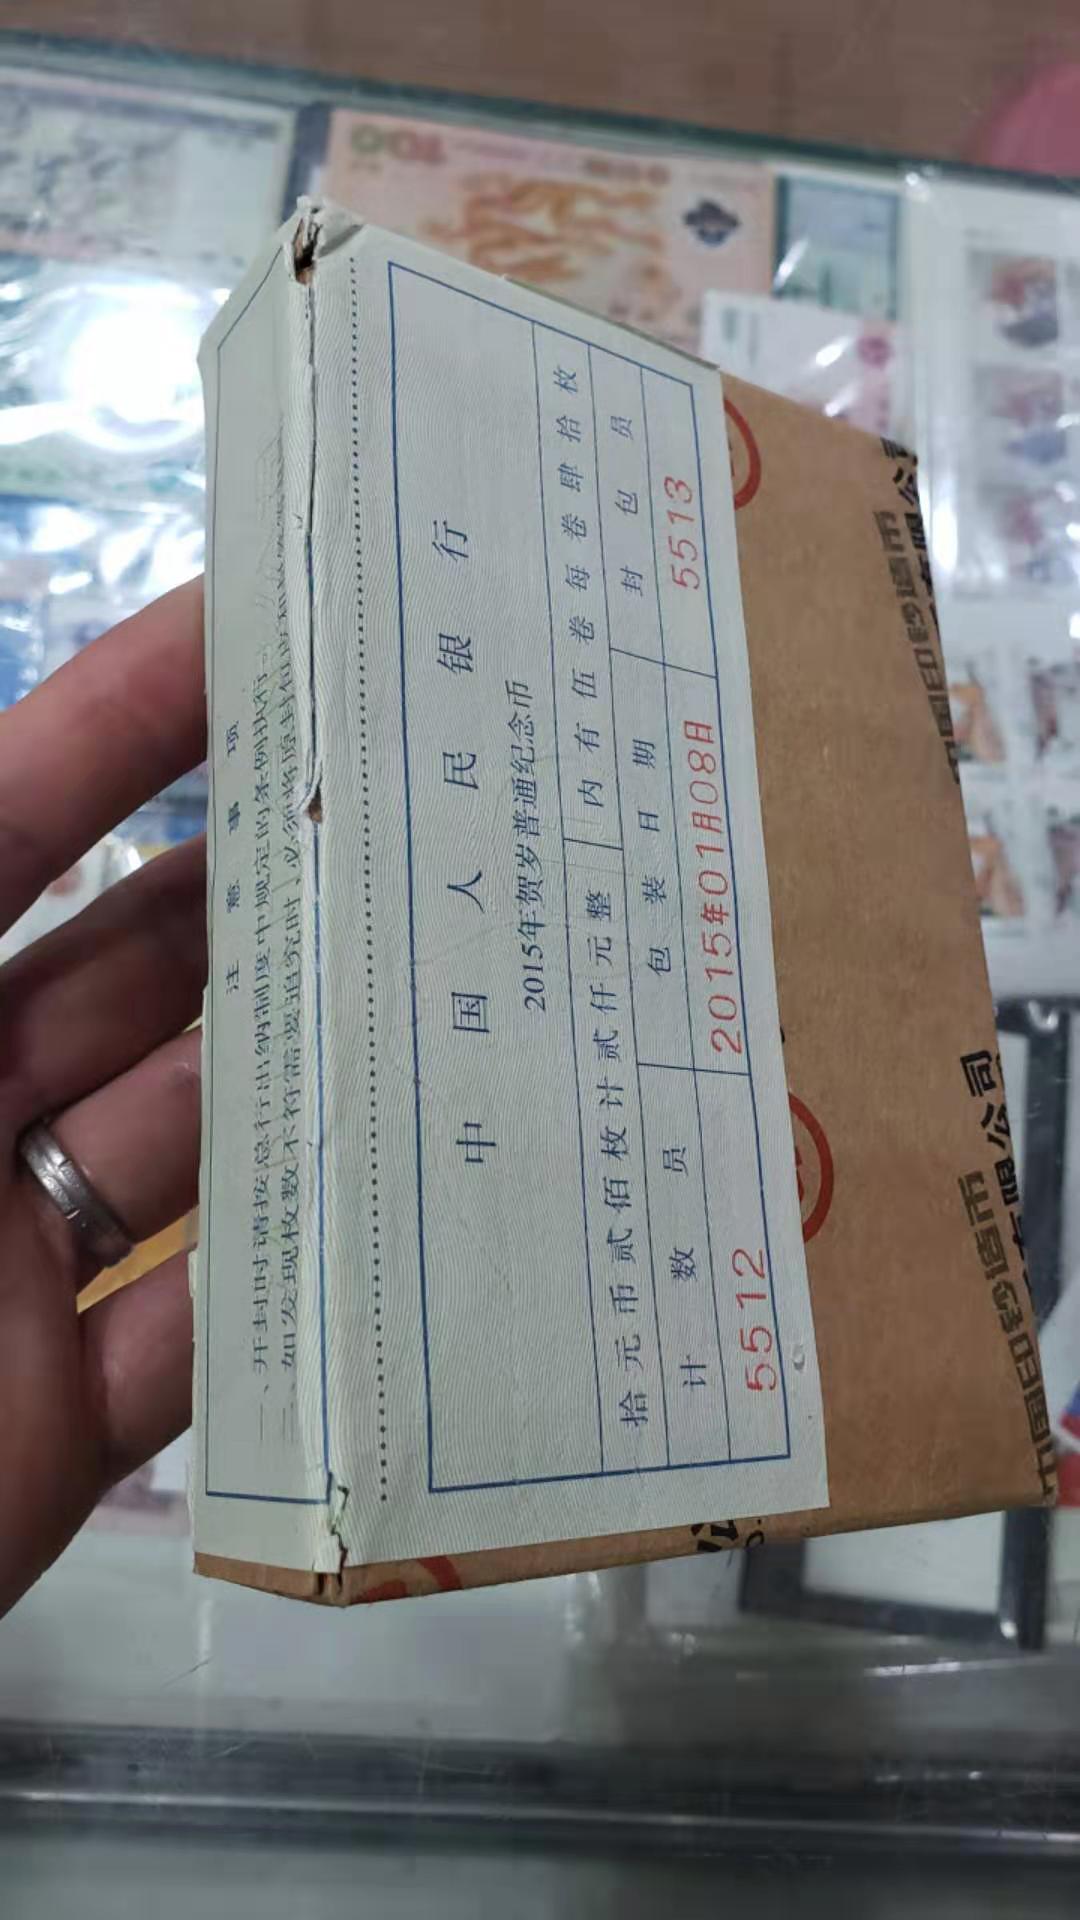 中国人民银行
2015年贺岁普通纪念币
拾元币贰佰枚计贰仟元整 内有伍卷每卷肆拾枚
计数员 包装日期 封包员
5512 2015年01月08日 5513
注意事项
一、开封时请按总行出纳制度中规定的条例执行。
二、如发现枚数不符需要追究时,必须将原封包
中国印钞造币
有限公司
中国印钞造币
有限公司
100